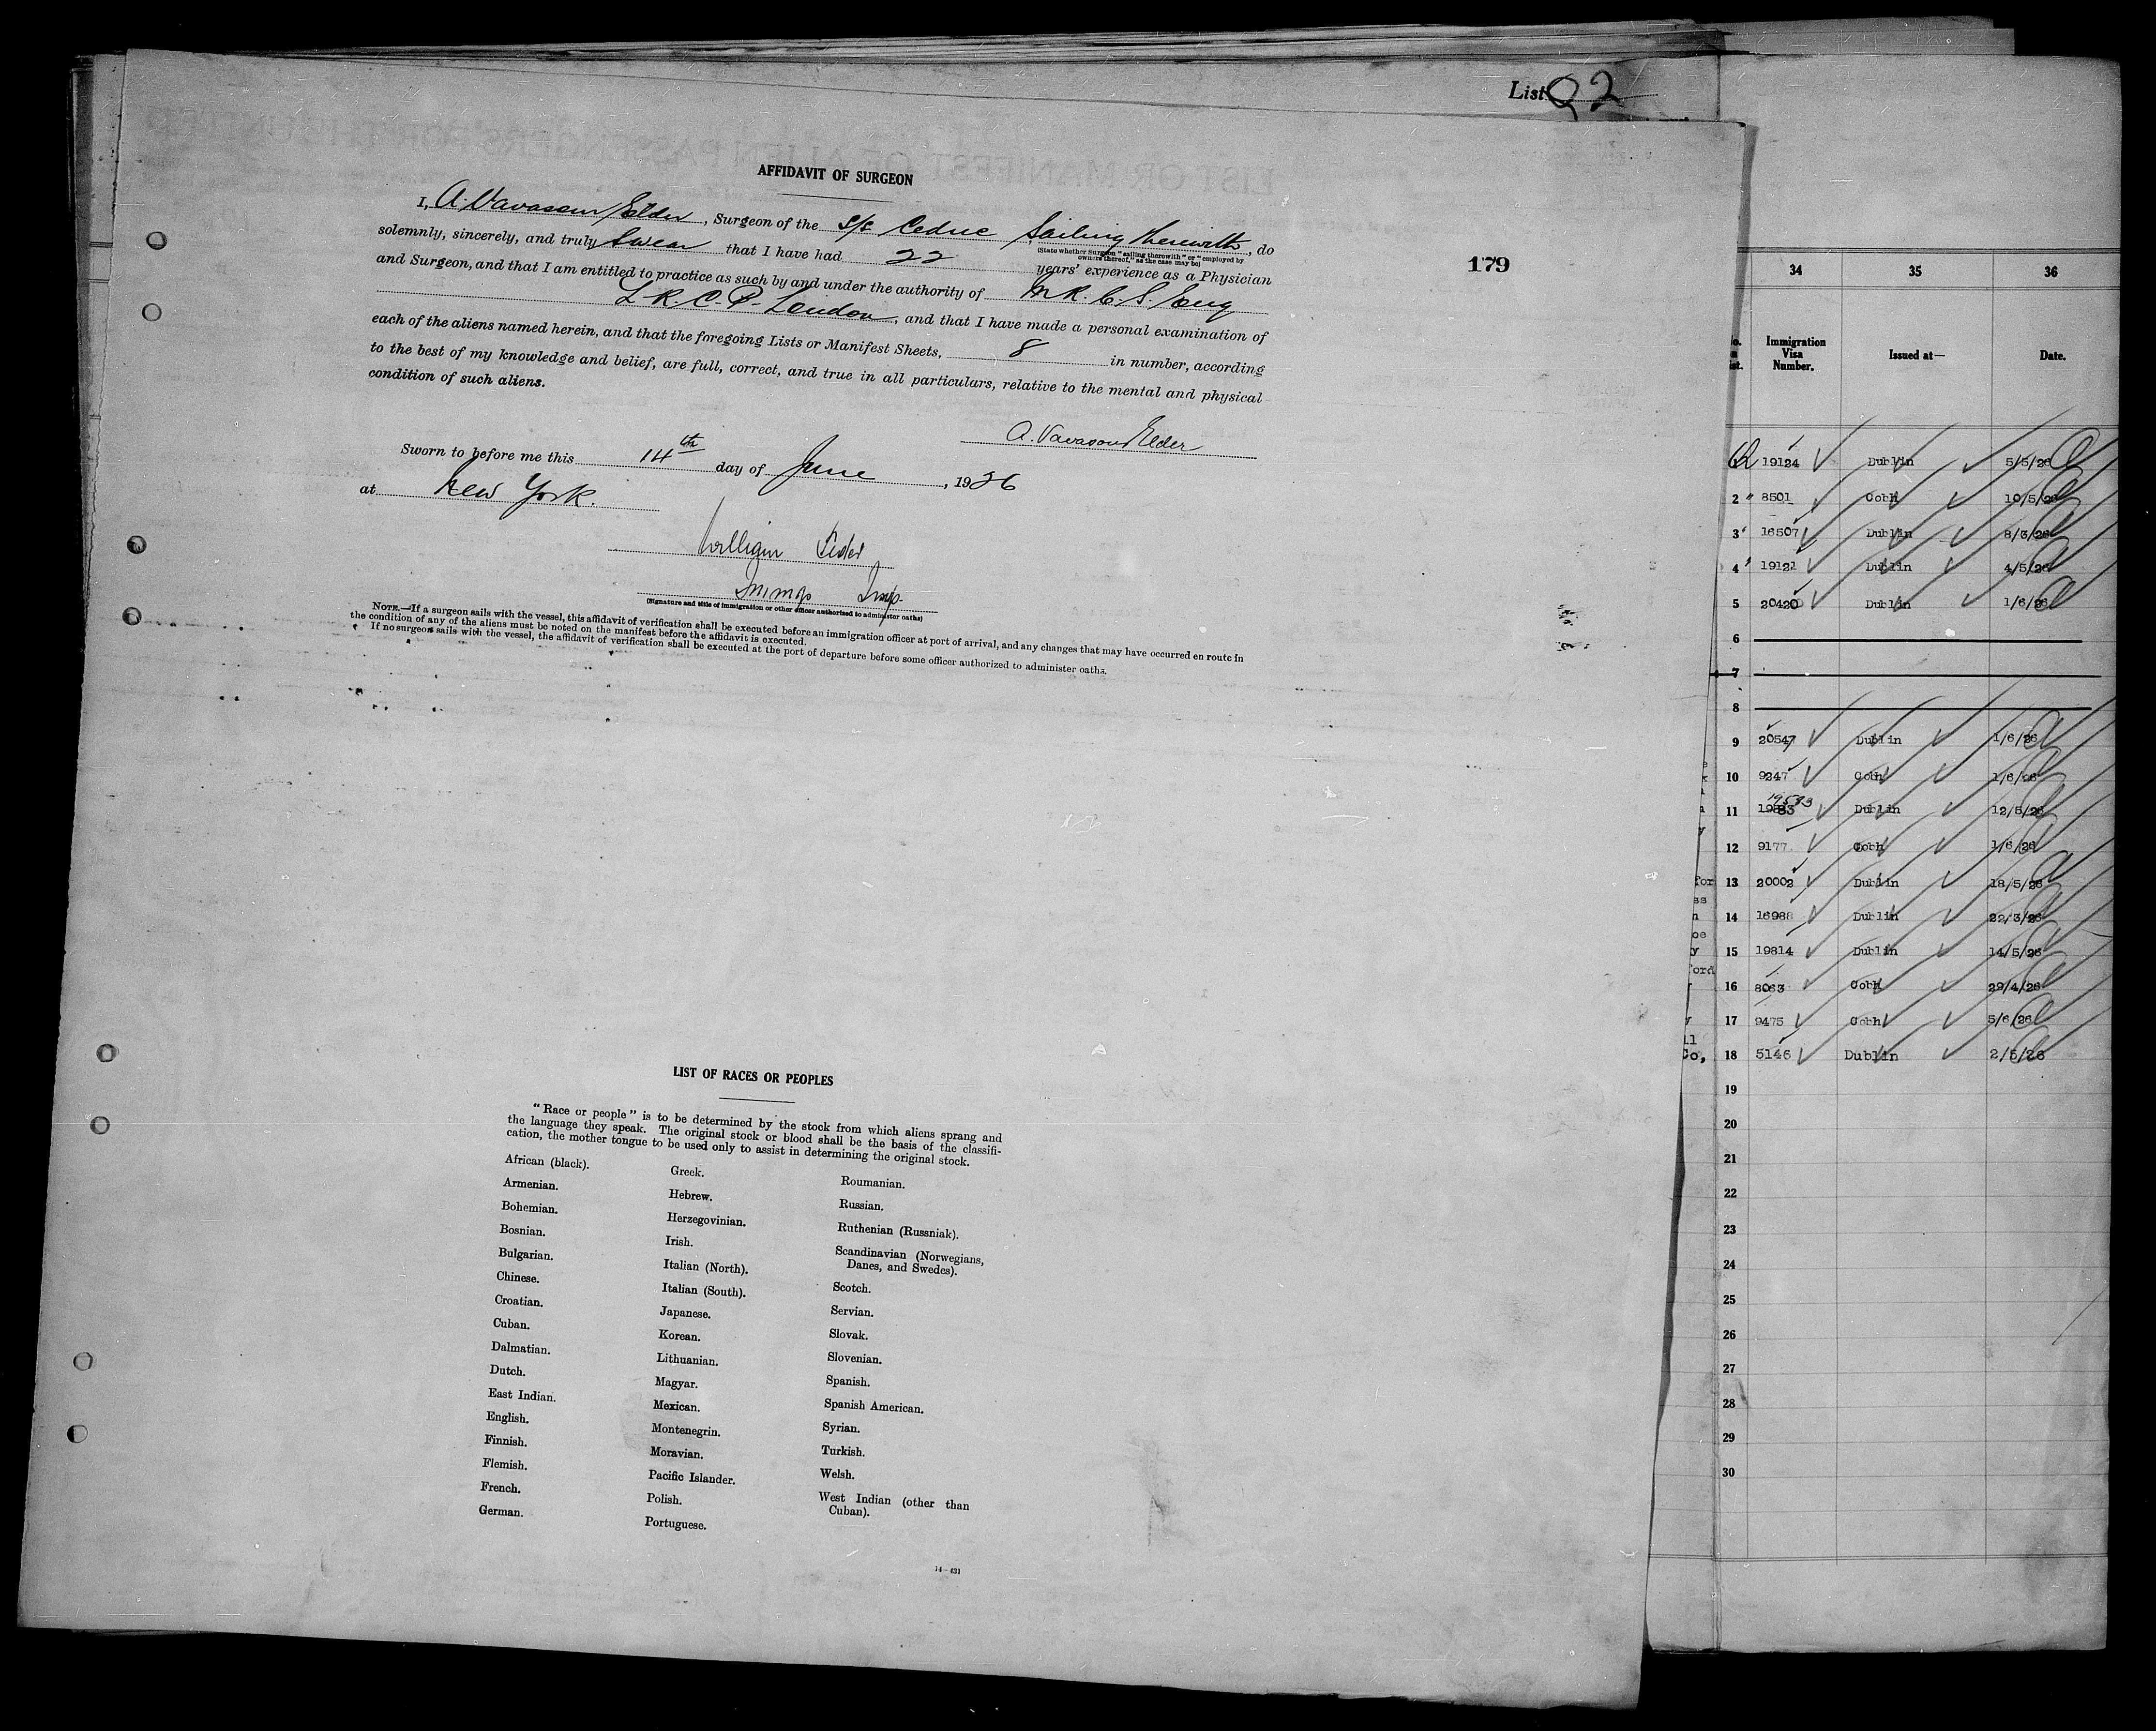 List 92
AFFIDAVIT OF SURGEON
I, A. Vavasour Elder, Surgeon of the S/S Cedric Sailing therewith, do
(State whether surgeon "sailing therewith" or "employed by
owners thereof," as the case may be)
solemnly, sincerely, and truly swear that I have had 22 years' experience as a Physician
and Surgeon, and that I am entitled to practice as such by and under the authority of M.R.C.S. Eng
L.R.C.P. London, and that I have made a personal examination of
each of the aliens named herein, and that the foregoing Lists or Manifest Sheets, 8 in number, according
to the best of my knowledge and belief, are full, correct, and true in all particulars, relative to the mental and physical
condition of such aliens.
A. Vavasour Elder
Sworn to before me this 14th day of June, 1926
at New York.
William
Immg Insp
(Signature and title of immigration or other officer authorized to administer oaths)
NOTE.—If a surgeon sails with the vessel, this affidavit of verification shall be executed before an immigration officer at port of arrival, and any changes that may have occurred en route in
the condition of any of the aliens must be noted on the manifest before the affidavit is executed.
If no surgeon sails with the vessel, the affidavit of verification shall be executed at the port of departure before some officer authorized to administer oaths.
179
LIST OF RACES OR PEOPLES
"Race or people" is to be determined by the stock from which aliens sprang and
the language they speak. The original stock or blood shall be the basis of the classifi-
cation, the mother tongue to be used only to assist in determining the original stock.
African (black).
Armenian.
Bohemian.
Bosnian.
Bulgarian.
Chinese.
Croatian.
Cuban.
Dalmatian.
Dutch.
East Indian.
English.
Finnish.
Flemish.
French.
German.
Greek.
Hebrew.
Herzegovinian.
Irish.
Italian (North).
Italian (South).
Japanese.
Korean.
Lithuanian.
Magyar.
Mexican.
Montenegrin.
Moravian.
Pacific Islander.
Polish.
Portuguese.
Roumanian.
Russian.
Ruthenian (Russniak).
Scandinavian (Norwegians,
Danes, and Swedes).
Scotch.
Servian.
Slovak.
Slovenian.
Spanish.
Spanish American.
Syrian.
Turkish.
Welsh.
West Indian (other than
Cuban).
14—431
34 35 36
Immigration
Visa
Number.
Issued at—
Date.
19124 Dublin 5/5/26
2 8501 Cobh 10/5/26
3 16507 Dublin 8/3/26
4 19121 Dublin 4/5/26
5 20420 Dublin 1/6/26
6
7
8
9 20547 Dublin 1/6/26
10 9247 Cobh 1/6/26
11 19583 Dublin 12/5/26
12 9177 Cobh 1/6/26
13 20002 Dublin 18/5/26
14 16988 Dublin 22/3/26
15 19814 Dublin 14/5/26
16 8063 Cobh 29/4/26
17 9475 Cobh 5/6/26
18 5146 Dublin 2/5/26
19
20
21
22
23
24
25
26
27
28
29
30